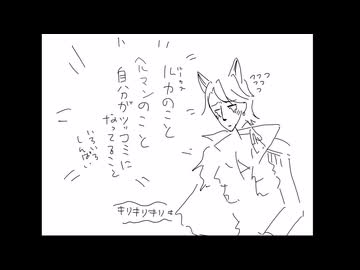 ルカのこと
ヘルマンのこと
自分がツッコミに
なってること
いろいろ
しんぱい
キリキリキリキ